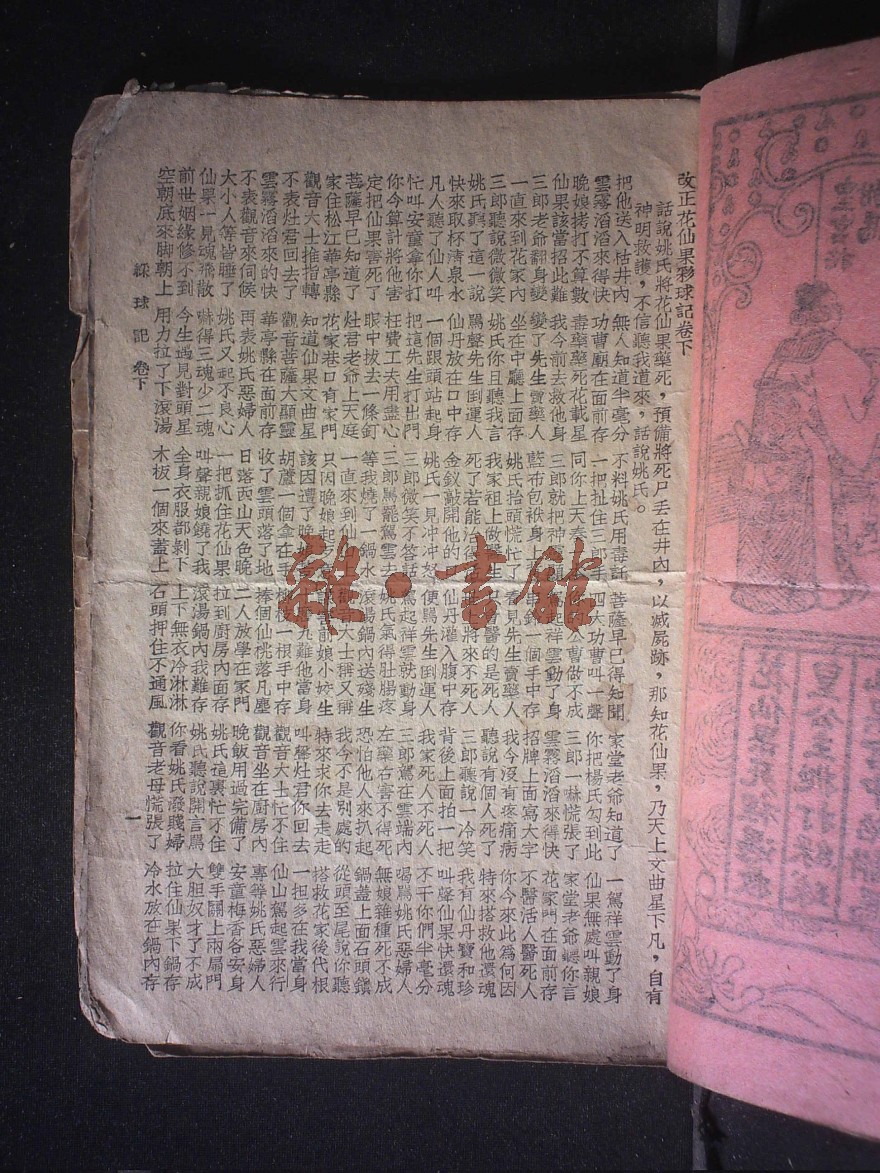 改正花仙果彩球記卷下
話說姚氏將花仙果藥死，預備將死尸丟在井內，以滅屍跡，那知花仙果，乃天上文曲星下凡，自有
神明救護，不信聽我道來，話說姚氏。
把他送入枯井內 無人知道半毫分 不料姚氏用毒計 菩薩早已得知聞 家堂老爺知道了 一駕祥雲動了身
雲霧滔滔來得快 功曹廟在面前存 一把扯住三郎 四大功曹叫一聲 你把楊氏勾到此 仙果無處叫親娘
晚娘拷打不算數 毒藥藥死花載星 同你上天奏 曹做不成 三郎一嚇慌張了 家堂老爺聽你言
仙果該當招此難 我今前去救他身 三郎就把神 起祥雲動了身 雲霧滔滔來得快 花家門在面前存
三郎老爺翻身變 變了先生賣藥人 藍布包袱身上 一個手中存 招牌上面寫大字 不醫活人醫死人
一直來到花家內 坐在中廳上面存 姚氏抬頭慌忙了 看見先生賣藥人 我今沒有疼痛病 你今來此為何因
三郎聽說微微笑 姚氏你且聽我言 我家祖上做醫生 醫的是死人 聽說有個人死了 特來搭救他還魂
姚氏聽了這一說 罵聲先生倒運人 死了若能治得 將來不死人 三郎聽說一冷笑 我有仙丹寶和珍
快來取杯清泉水 仙丹放在口中存 金釵敲開他的 仙丹灌入腹中存 背後上面拍一把 叫聲仙果快還魂
凡人聽了仙人叫 一個跟頭站起身 姚氏一見冲冲怒 便罵先生倒運人 我家死人不死人 不干你們半毫分
忙叫安童拿你打 把這先生打出門 三郎微笑不答話 駕起祥雲就動身 三郎駕在雲端內 喝罵姚氏惡婦人
你今算計將他害 枉費工夫用盡心 三郎罵罷駕雲去 姚氏氣得肚腸疼 左藥右害不得死 無娘雜種死不成
定把仙果害死了 眼中拔去一條釘 等我燒了一鍋水 滾湯鍋內送殘生 恐怕他人來扒起 鍋蓋上面石頭鎮
菩薩早已知道了 灶君老爺上天庭 一直來到仙 大士稱又稱 我今不是別處的 從頭至尾說你聽
家住松江華亭縣 花家巷口有家門 只因晚娘起 前娘小姣生 特來求你去走走 搭救花家後代根
觀音大士推指轉 知道仙果文曲星 該因遭了晚 九難他當身 叫聲灶君你回去 一担多在我當身
不表灶君回去了 觀音菩薩大顯靈 胡蘆一個拿在手 一根手中存 觀音大士忙不住 仙山駕起雲來行
雲霧滔滔來的快 華亭縣在面前存 收了雲頭落了地 捧個仙桃落凡塵 觀音坐在廚房內 專尋姚氏惡婦人
不表觀音來伺候 再表姚氏惡婦人 日落西山天色晚 二人放學在家門 晚飯用過完備了 安童梅香各安身
大小人等皆睡了 姚氏又起不良心 一把抓住花仙果 拉到廚房內面存 姚氏這裏忙不住 雙手關上兩扇門
仙果一見魂飛散 嚇得三魂少二魂 叫聲親娘饒了我 滾湯鍋內我難存 姚氏聽說開言罵 大胆奴才了不成
前世姻緣修不到 今生遇見對頭星 全身衣服都剝下 上下無衣冷淋淋 你看姚氏潑賤婦 拉住仙果下鍋存
空朝底來脚朝上 用力拉了下滾湯 木板一個來蓋上 石頭押住不通風 觀音老母慌張了 冷水放在鍋內存
綵球記 卷下 一
雜·書館